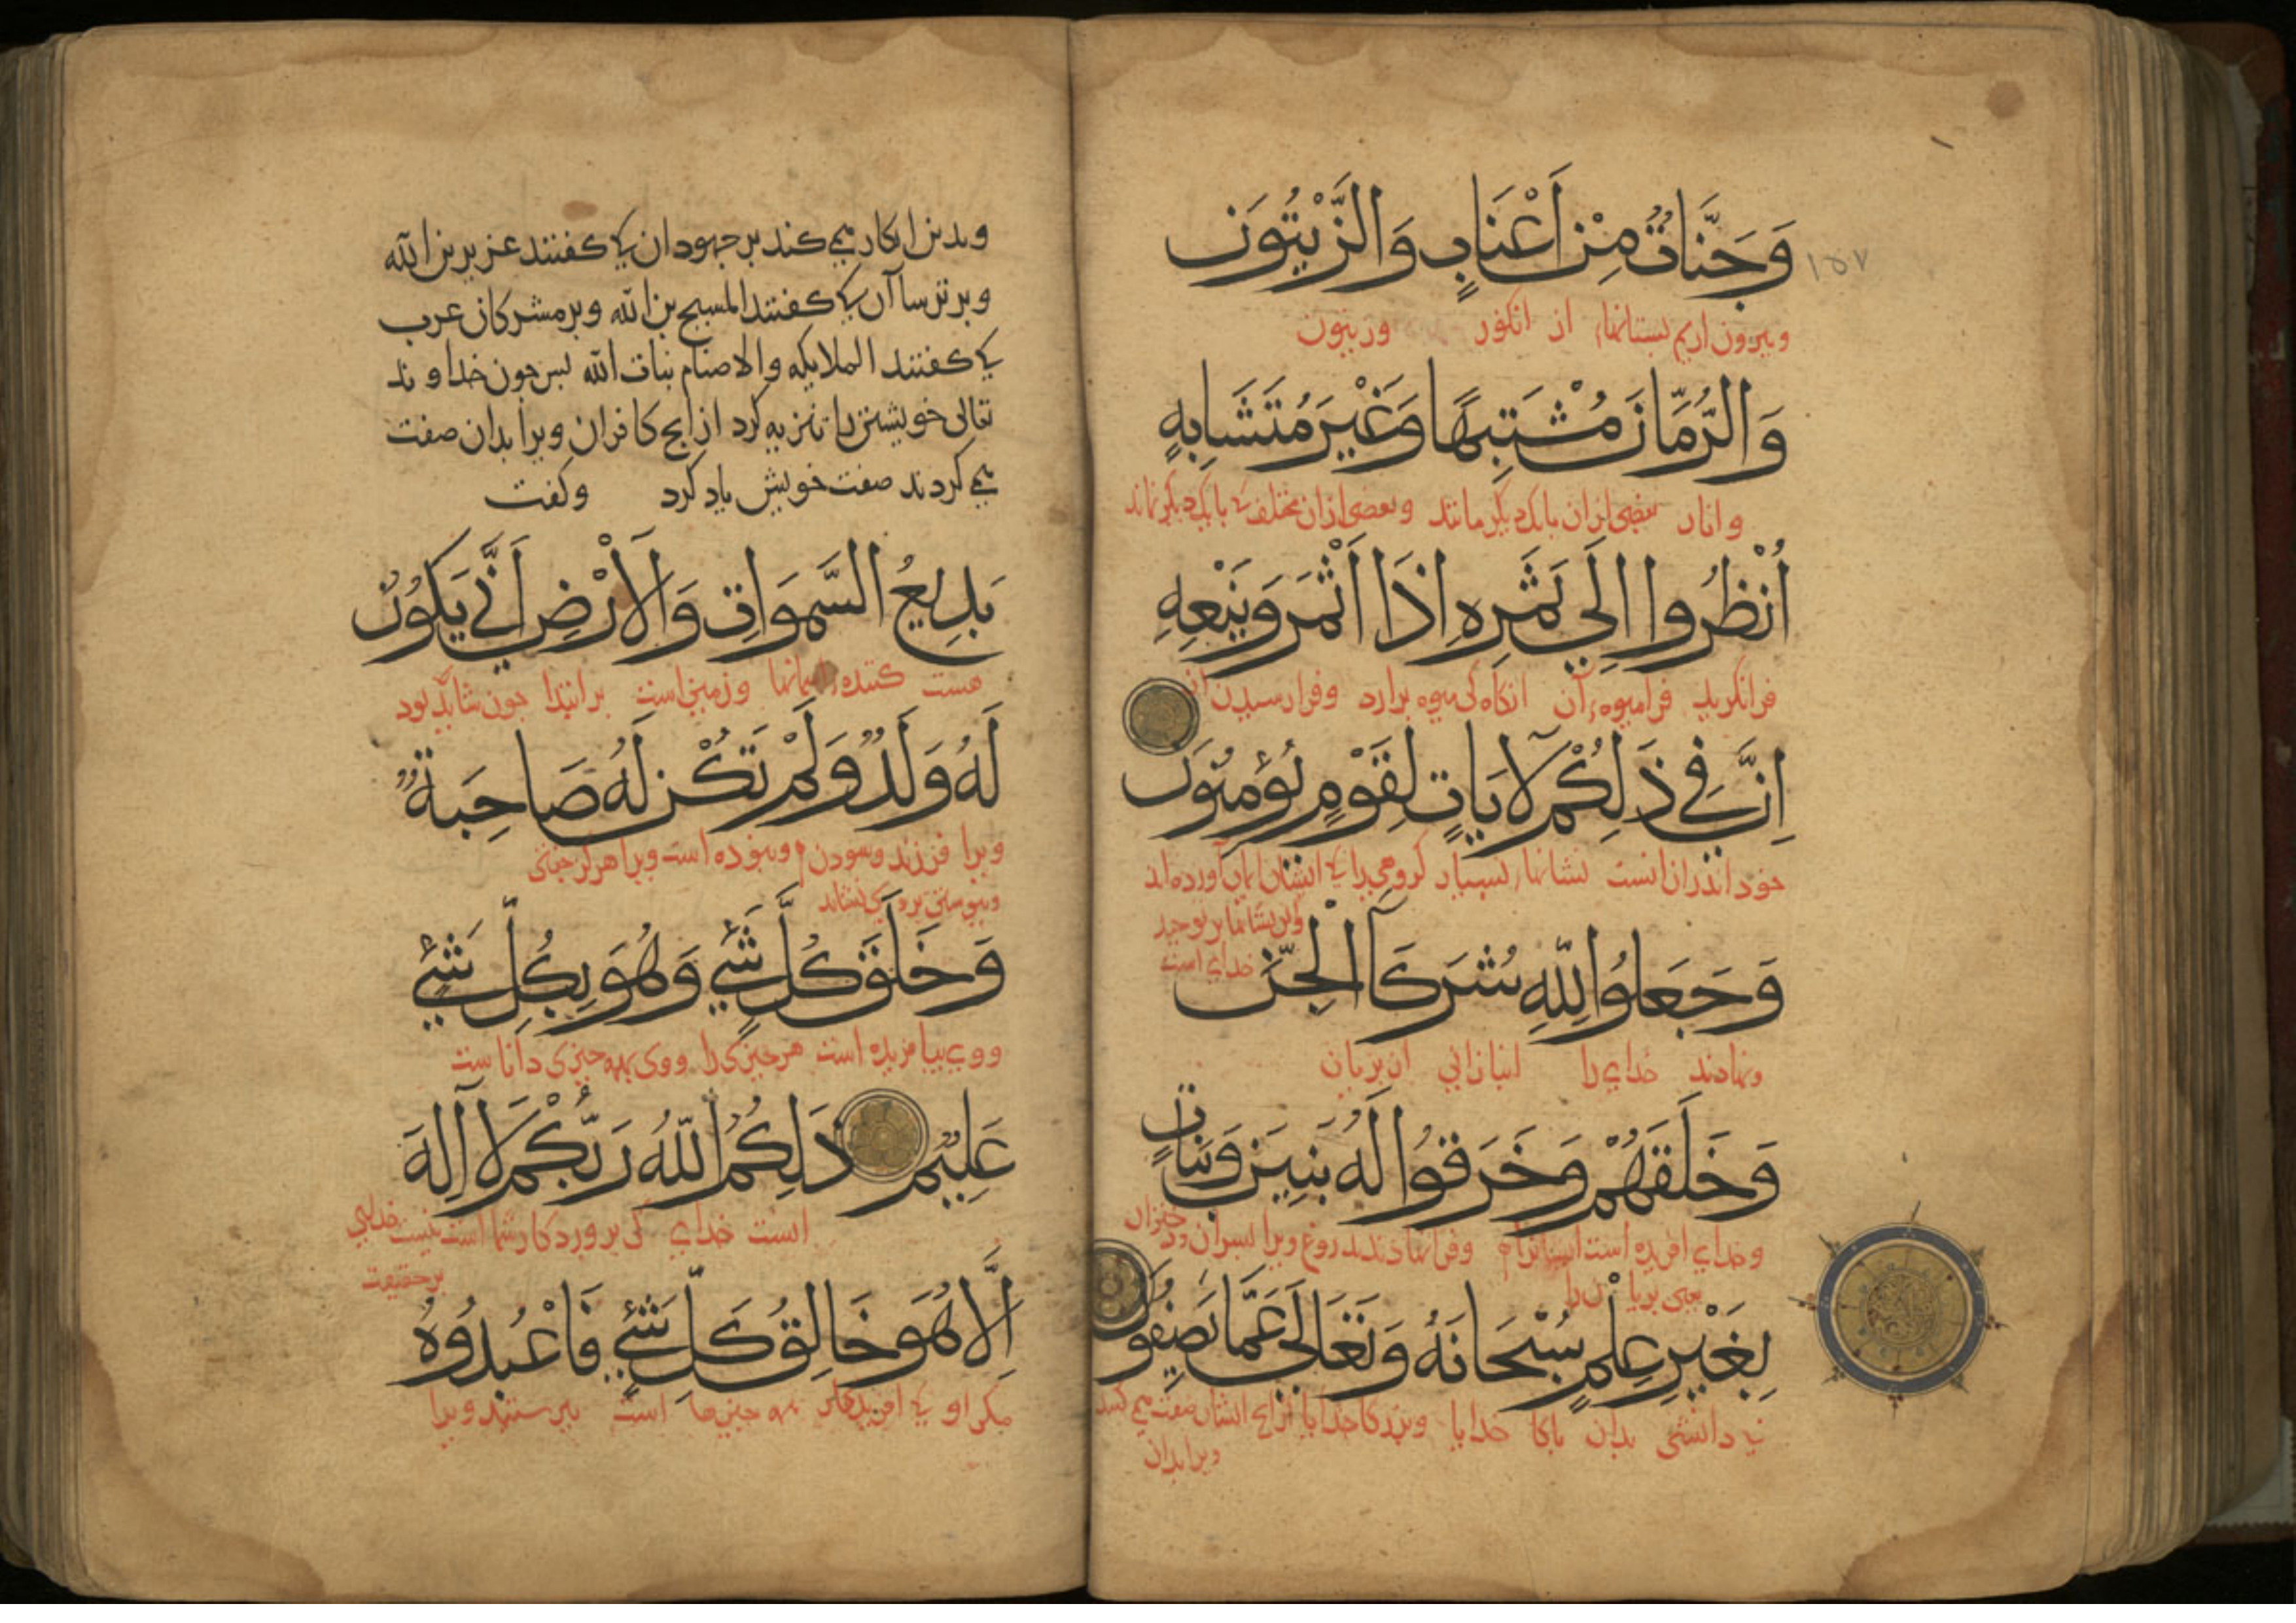 وَجَنَّاتٌ مِنْ اَعْنَابٍ وَالزَّيْتُونَ
١٥٧
وبیرون اریم بستانهاء از انکور وزیتون
وَالرُّمَّانَ مُشْتَبِهًا وَغَيْرَ مُتَشَابِهٍ
وانار بعضی ازان بایک دیکر مانند وبعضی ازان مختلف کی بایک دیکر نماند
اُنْظُرُوا اِلَي ثَمَرِهِ اِذَا اَثْمَرَ وَيَنْعِهِ
فرانکرید فرامیوه آن انکاه کی میوه برارد وفرارسیدن ان
اِنَّ فِي ذَلِكُمْ لَآيَاتٍ لِقَوْمٍ يُؤْمِنُونَ
خود اندران است نشانهاء بسیار کروهی را کی ایشان ایمان آورده اند
واین نشانها بر توحید
خدای است
وَجَعَلُوا لِلّٰهِ شُرَكَآ الْجِنَّ
ونهادند خدای را انبازانی از پریان
وَخَلَقَهُمْ وَخَرَقُوا لَهُ بَنِينَ وَبَنَاتٍ
وخدای افریده است ایشانرا وفرانهادند بدروغ ویرا پسران ودختران
یعنی پریانرا
بِغَيْرِ عِلْمٍ سُبْحَانَهُ وَتَعَالَي عَمَّا يَصِفُونَ
بی دانشی بدان پاکا خدایا وبزرکا خدایا ازانچ ایشان صفت می کنند
ویرا بدان
وبدین انکار می کند بر جهودان کی کفتند عزیر بن الله
وبر ترساآن کی کفتند المسیح بن الله وبر مشرکان عرب
کی کفتند الملایکه والاصنام بنات الله پس چون خداوند
تعالی خویشتن را تنزیه کرد ازانج کافران ویرا بدان صفت
می کردند صفت خویش یاد کرد وکفت
بَدِيعُ السَّمَوَاتِ وَالْاَرْضِ اَنَّي يَكُونُ
هست کننده اسمانها وزمین است برابتدا چون شاید بود
لَهُ وَلَدٌ وَلَمْ تَكُنْ لَهُ صَاحِبَةٌ
ویرا فرزند ونبوده است ویرا هرکز جفتی
وَخَلَقَ كُلَّ شَيْءٍ وَهُوَ بِكُلِّ شَيْءٍ
ووی بیافریده است هر چیزی را ووی بهمه چیزی داناست
عَلِيمٌ ذَلِكُمُ اللّٰهُ رَبُّكُمْ لَآ اِلَهَ
انست خدای کی پروردکار شما است نیست خدایی
بر حقیقت
اِلَّا هُوَ خَالِقُ كُلِّ شَيْءٍ فَاعْبُدُوهُ
مکر او کی افریدکار همه چیزها است بپرستید ویرا